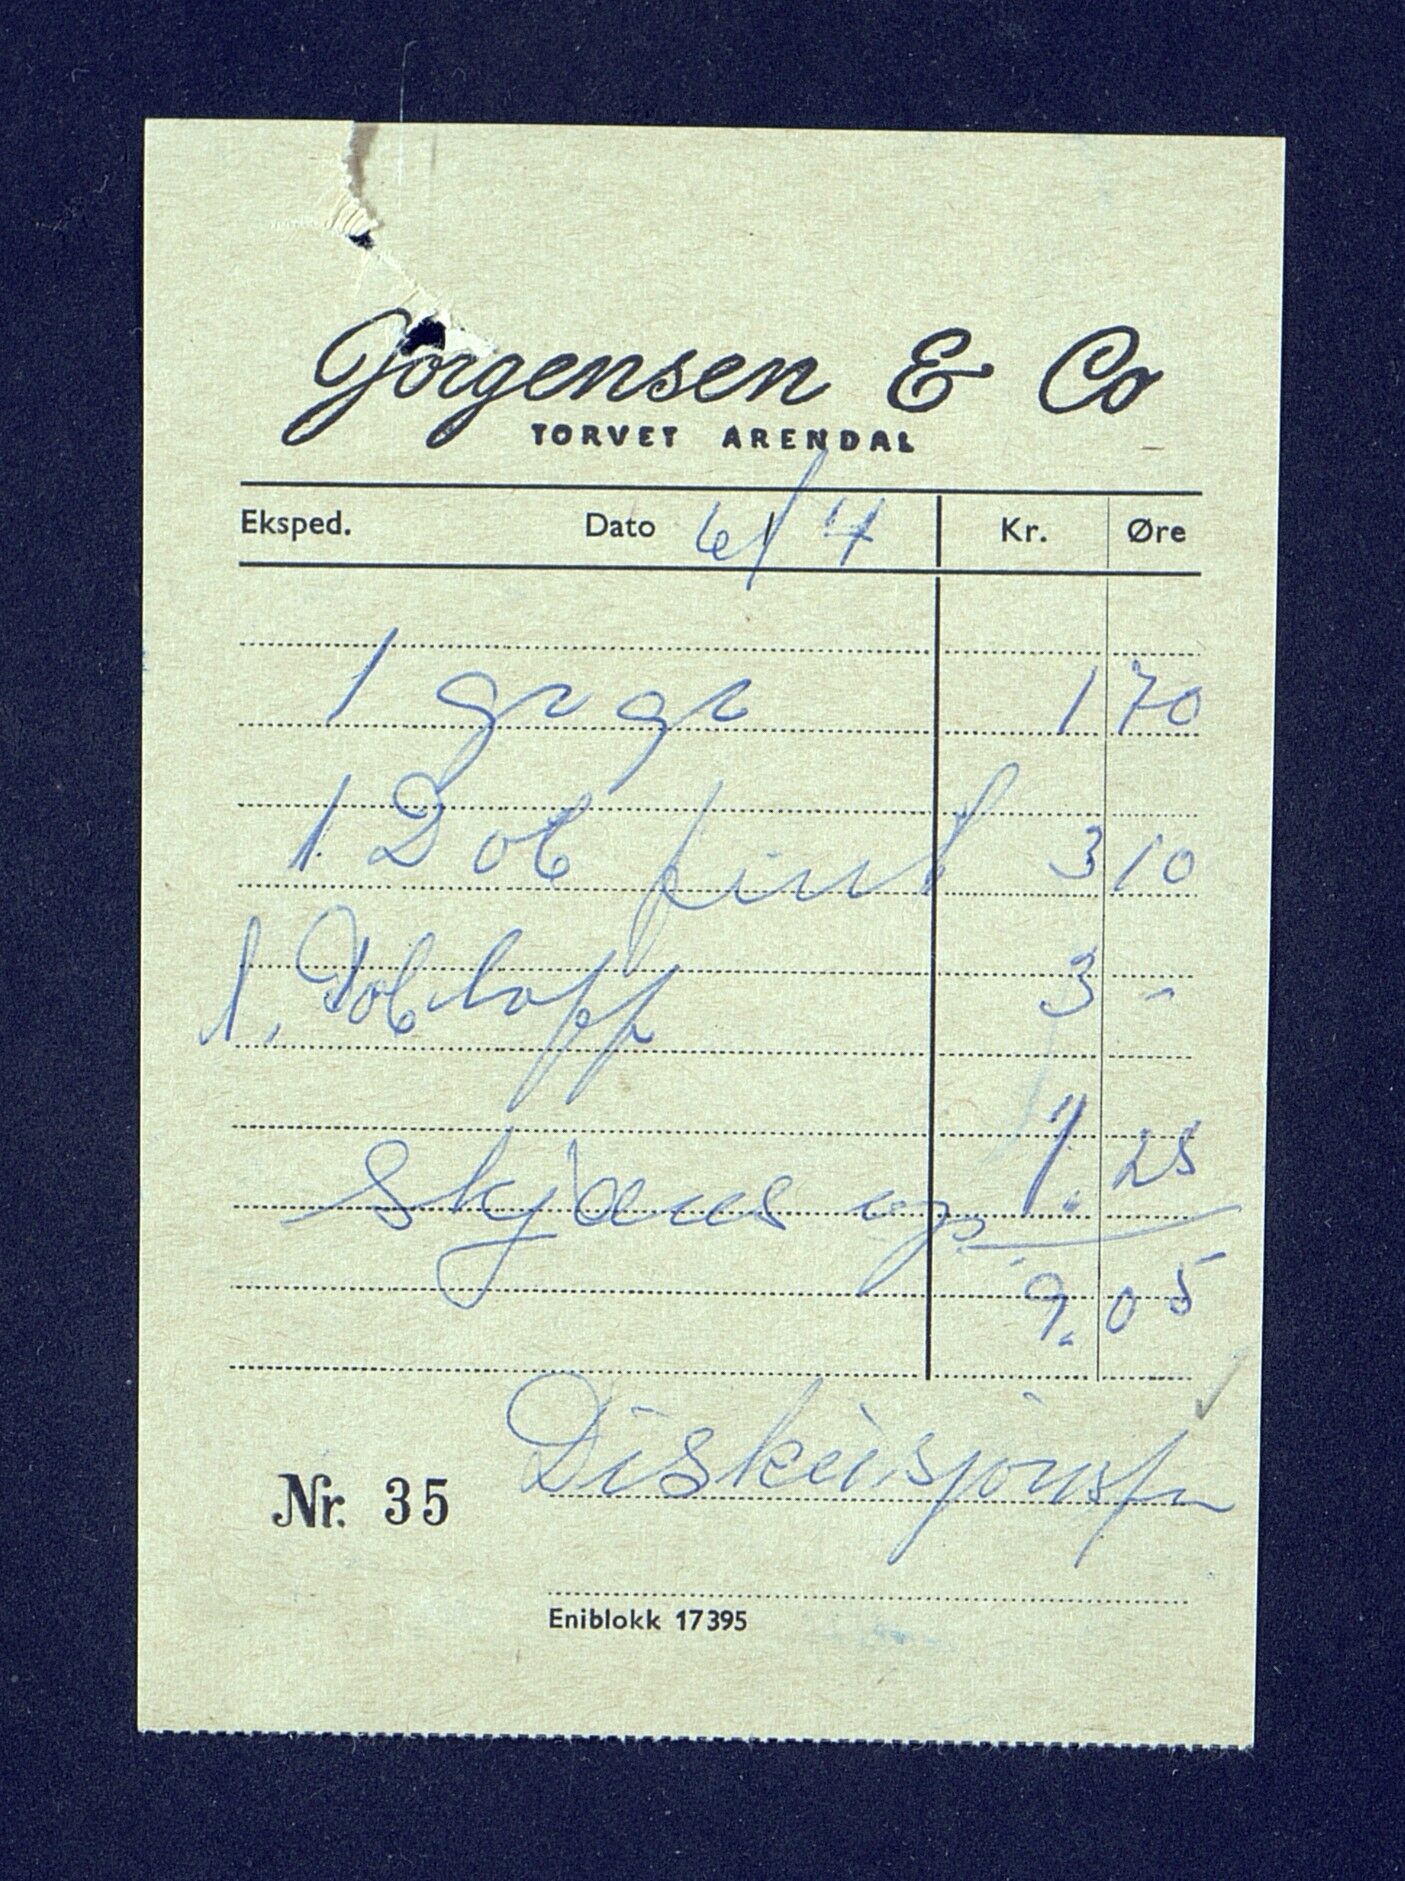 Jørgensen & Co
TORVET ARENDAL
Eksped. Dato 6/4 Kr. Øre
1 1 70
1. Dob fint 3 10
1. Dob lopp 3 -
op 1. 25
9. 05
Nr. 35
Eniblokk 17395